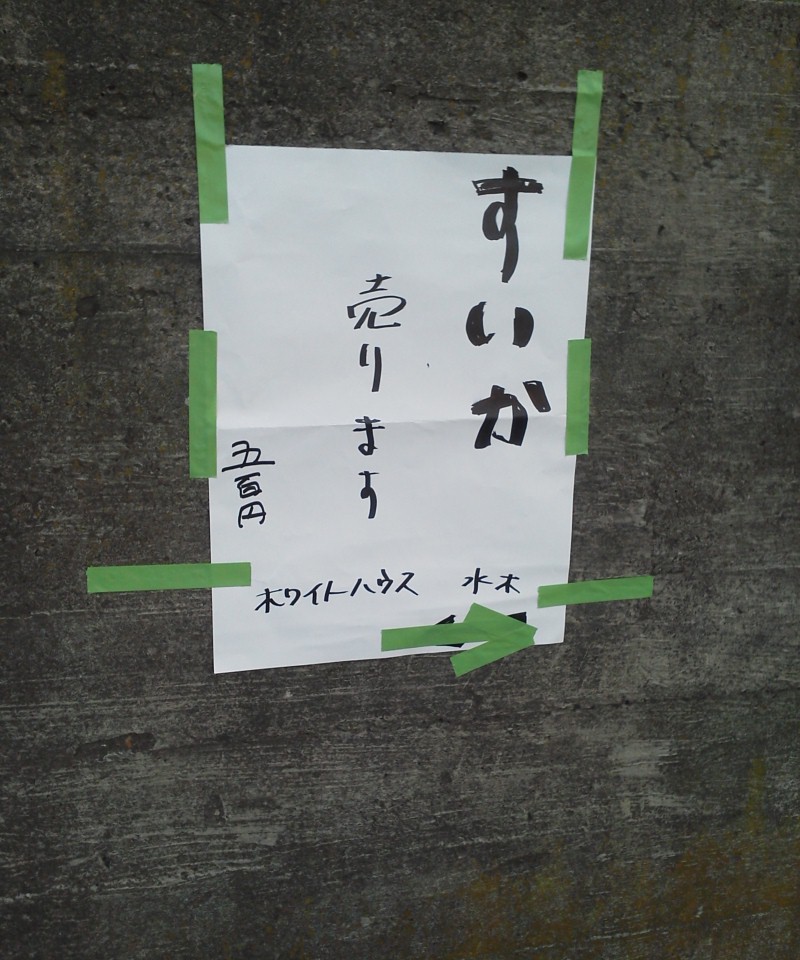 すいか
売ります
五百円
ホワイトハウス 水木